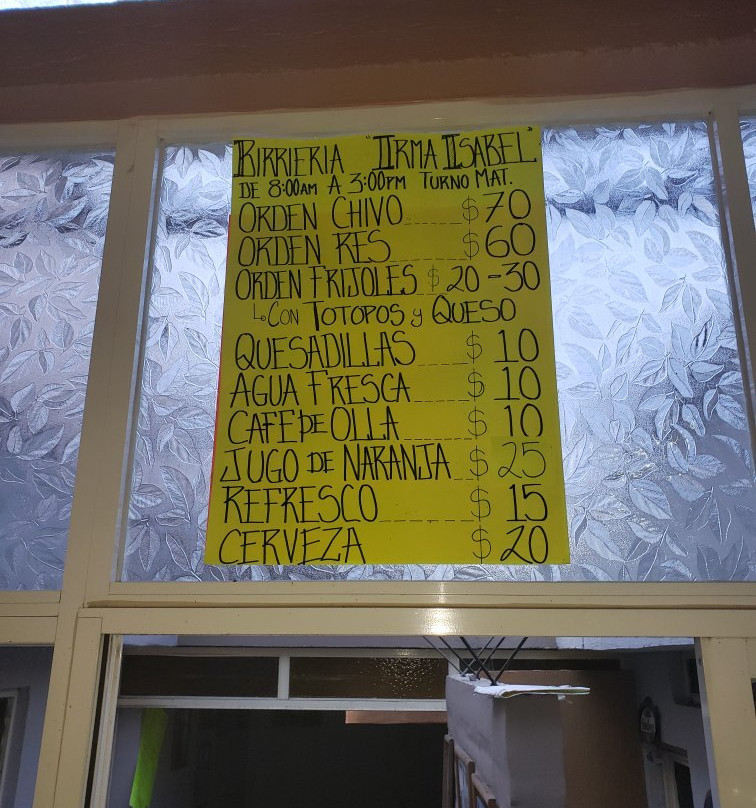 BIRRIERIA "IRMA ISABEL"
DE 8:00AM A 3:00PM TURNO MAT.
ORDEN CHIVO $70
ORDEN RES $60
ORDEN FRIJOLES $20-30
CON TOTOPOS y QUESO
QUESADILLAS $10
AGUA FRESCA $10
CAFE DE OLLA $10
JUGO DE NARANJA $25
REFRESCO $15
CERVEZA $20